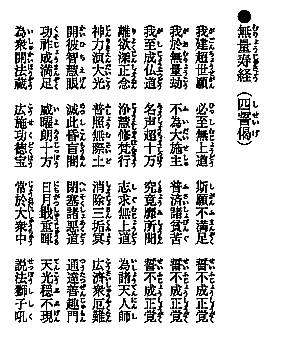 ●無量寿経（四誓偈）
我建超世願　必至無上道　斯願不満足　誓不成正覚
我於無量劫　不為大施主　普済諸貧苦　誓不成正覚
我至成仏道　名声超十方　究竟靡所聞　誓不成正覚
離欲深正念　浄慧修梵行　志求無上道　為諸天人師
神力演大光　普照無際土　消除三垢冥　広済衆厄難
開彼智慧眼　滅此昏盲闇　閉塞諸悪道　通達善趣門
功祚成満足　威曜朗十方　日月戢重暉　天光隠不現
為衆開法蔵　広施功徳宝　常於大衆中　説法獅子吼